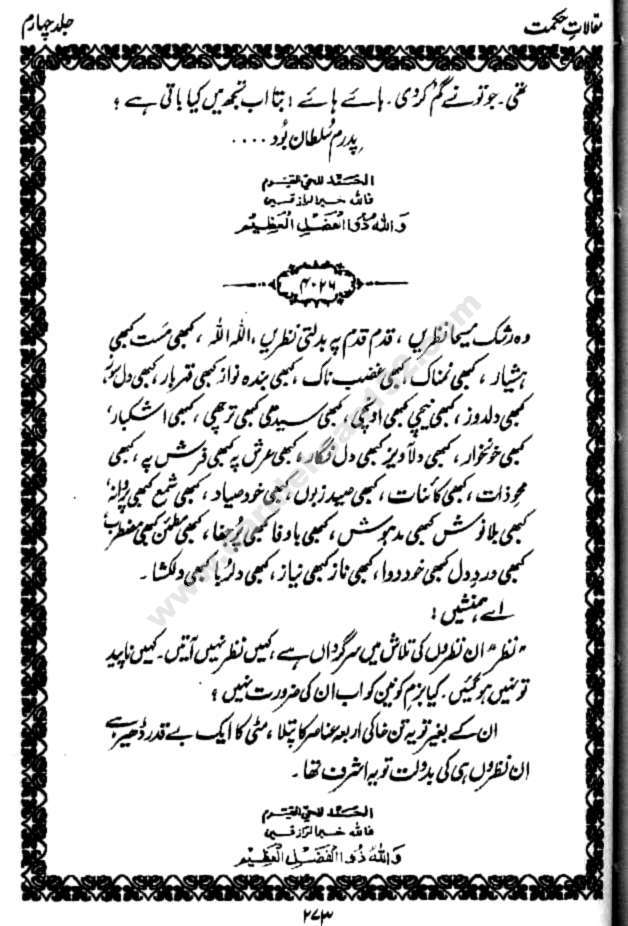 مقالاتِ حکمت
جلد چہارم
تھی۔ جو تو نے گم کر دی۔ ہائے ہائے! بتا اب تجھ میں کیا باقی ہے؟
پدرم سُلطان بُود ....
الحَمْد للحیّ القیّوم
فاللہ خیرالرازقین
وَاللہُ ذُوالْفَضْلِ الْعَظِیْم
۴۰۲۶
وہ رشکِ مسیحا نظریں، قدم قدم پہ بدلتی نظریں، اللہ اللہ، کبھی مست کبھی
ہشیار، کبھی نمناک کبھی غضب ناک، کبھی بندہ نواز کبھی قہر بار، کبھی دل سوز،
کبھی دلدوز، کبھی نیچی کبھی اونچی، کبھی سیدھی کبھی ترچھی، کبھی اشکبار،
کبھی خونخوار، کبھی دلآویز کبھی دل فگار، کبھی عرش پہ کبھی فرش پہ، کبھی
محوِ ذات، کبھی کائنات، کبھی صیدِ زبوں، کبھی خود صیاد، کبھی شمع کبھی پروانہ،
کبھی بلانوش کبھی مدہوش، کبھی باوفا کبھی پُرجفا، کبھی مطمئن کبھی مضطرب،
کبھی دردِ دل کبھی خود دوا، کبھی ناز کبھی نیاز، کبھی دلرُبا کبھی دلکشا۔
اے ہمنشیں!
"نظر" ان نظروں کی تلاش میں سرگرداں ہے، کہیں نظر نہیں آتیں۔ کہیں ناپید
تو نہیں ہو گئیں۔ کیا بزمِ کونین کو اب ان کی ضرورت نہیں؟
ان کے بغیر تو یہ تن خاکی اربعہ عناصر کا پتلا، مٹی کا ایک بے قدر ڈھیر ہے
ان نظروں ہی کی بدولت تو یہ اشرف تھا۔
الحَمْد للحیّ القیّوم
فاللہ خیرالرازقین
وَاللہُ ذُوالْفَضْلِ الْعَظِیْم
۲۷۳